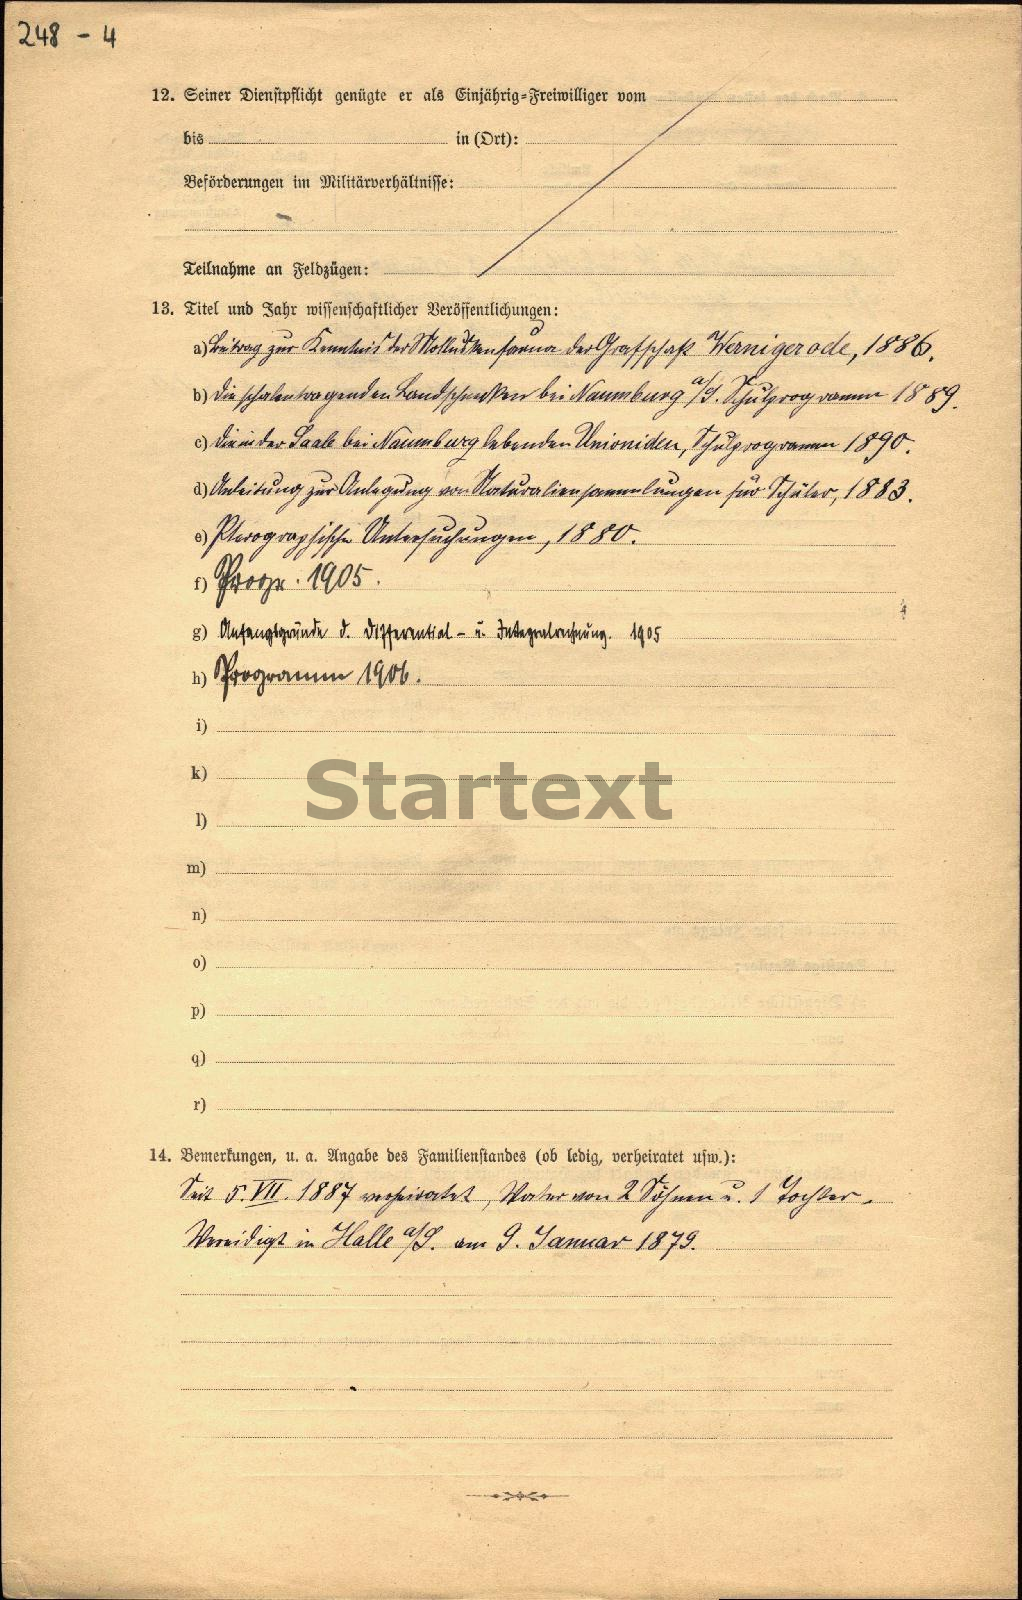 248 - 4
12. Seiner Dienstpflicht genügte er als Einjährig-Freiwilliger vom
bis in (Ort):
Beförderungen im Militärverhältnisse:
Teilnahme an Feldzügen:
13. Titel und Jahr wissenschaftlicher Veröffentlichungen:
a) Beitrag zur Kenntnis der Molluskenfauna der Grafschaft Wernigerode, 1886.
b) Die schalentragenden Landschnecken bei Naumburg a/S. Schulprogramm 1889.
c) Die in der Saale bei Naumburg lebenden Unioniden, Schulprogramm 1890.
d) Anleitung zur Anlegung von Naturaliensammlungen für Schüler, 1883.
e) Pterographische Untersuchungen, 1880.
f) Progr. 1905.
g) Anfangsgründe d. Differential- u. Integralrechnung. 1905
h) Programm 1906.
i)
k)
Startext
l)
m)
n)
o)
p)
q)
r)
14. Bemerkungen, u. a. Angabe des Familienstandes (ob ledig, verheiratet usw.):
Seit 5. VII. 1887 verheiratet, Vater von 2 Söhnen u. 1 Tochter.
Vereidigt in Halle a/S. am 9. Januar 1879.